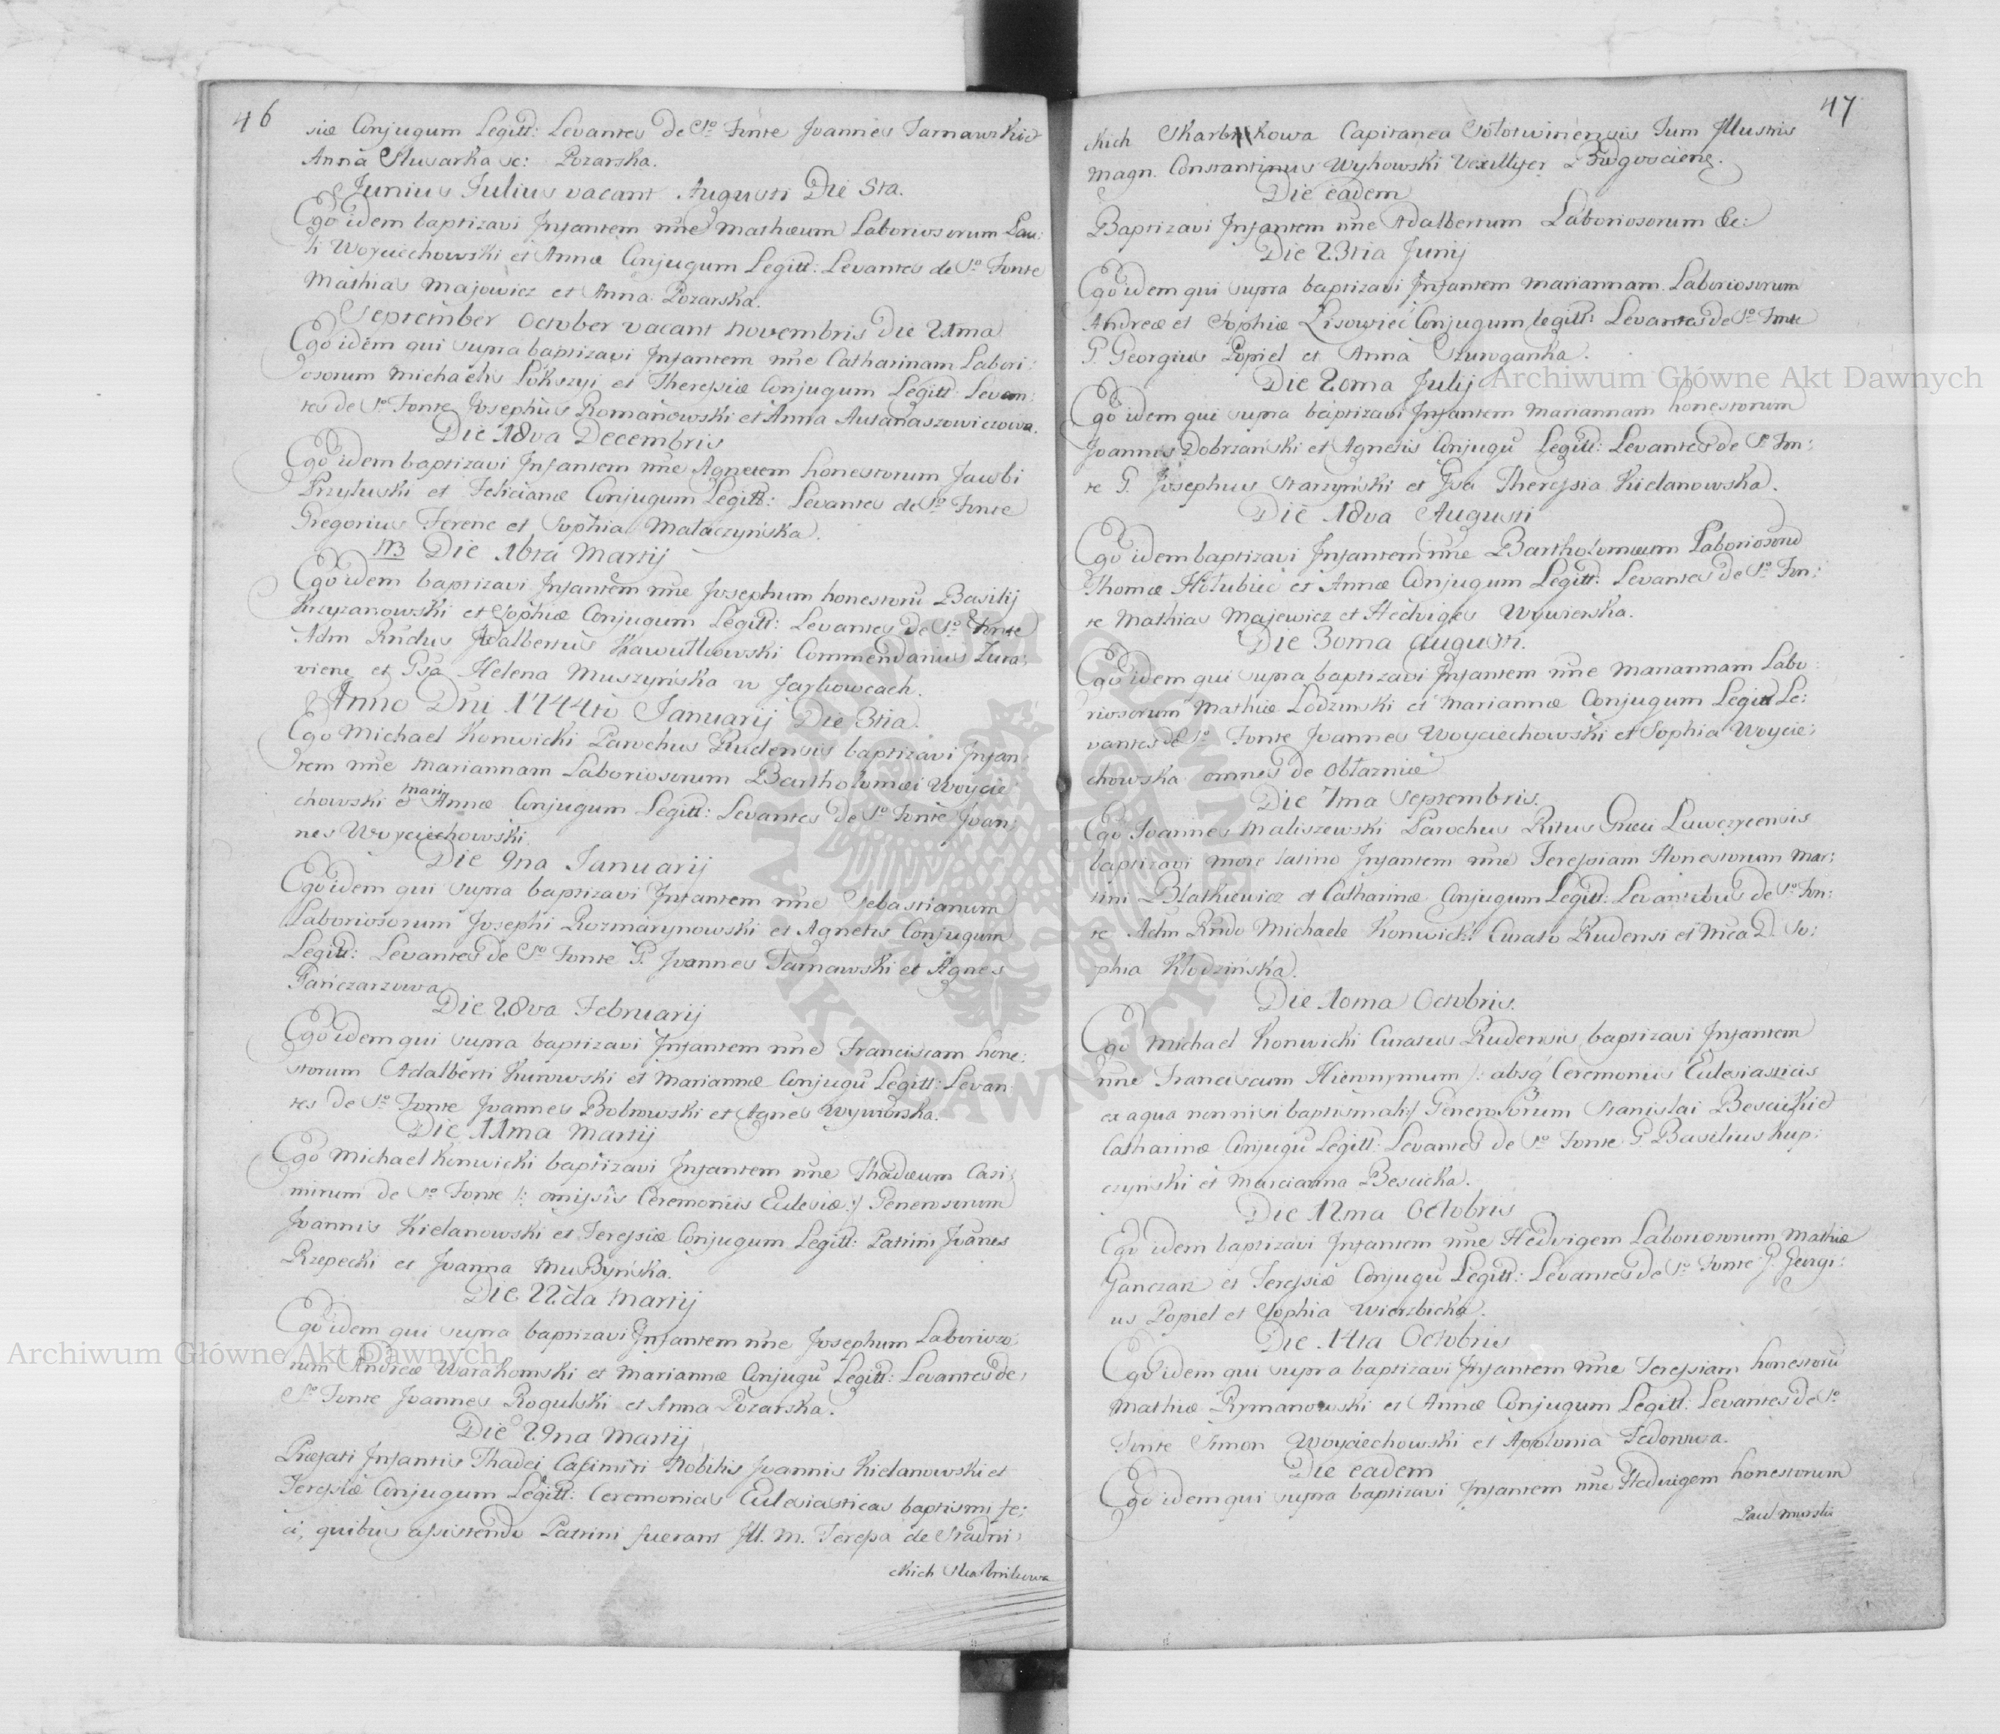 46
siæ Conjugum Legitt: Levantes de Sto Fonte Joannes Tarnawski et
Anna Slusarka sc: Pozarska.
Junius Julius vacant Augusti Die 5ta.
Ego idem baptizavi Infantem nne Mathæum Laboriosorum Pau:
li Woyciechowski et Annæ Conjugum Legitt: Levantes de So Fonte
Mathias Majowicz et Anna Pozarska.
September October vacant Novembris Die 21ma
Ego idem qui supra baptizavi Infantem nne Catharinam Labori:
osorum Michaelis Sokszyi et Theressiæ Conjugum Legitt: Levan:
tes de So Fonte Josephus Romanowski et Anna
Die 18va Decembris
Ego idem baptizavi Infantem nne Agnetem honestorum Jacobi
Przyluski et Felicianæ Conjugum Legitt: Levantes de So Fonte
Gregorius Ferenc et Sophia Malaczyńska.
Die 16ta Martij
Ego idem baptizavi Infantem nne Josephum honestorũ Basilij
Krzyzanowski et Sophiæ Conjugum Legitt: Levantes de So Fonte
Adm Rndus Adalbertus Commendarius Zura:
viens et Gsa Helena Muszyńska w
Anno Dni 1744to Januarij Die 3tia.
Ego Michael Konwicki Parochus Rudensis baptizavi Infan:
tem nne Mariannam Laboriosorum Bartholomæi Woycie:
chowski et Mari Annæ Conjugum Legitt: Levantes de So Fonte Joan:
nes Woyciechowski.
Die 9na Januarij
Ego idem qui supra baptizavi Infantem nne Sebastianum
Laboriosorum Josephi Rozmarynowski et Agnetis Conjugum
Legitt: Levantes de So Fonte G. Joannes Tarnawski et Agnes
Gańczarzowa
Die 28va Februarij
Ego idem qui supra baptizavi Infantem nne Franciscam hone:
storum Adalberti Kurowski et Mariannæ Conjugũ Legitt: Levan:
tes de So Fonte Joannes Bobrowski et Agnes Wywiorska.
Die 11ma Martij
Ego Michael Konwicki baptizavi Infantem nne Thadæum Casi:
mirum de So Fonte /: omissis Ceremoniis Eclesiæ :/ Generosorum
Joannis Kielanowski et Teressiæ Conjugum Legitt: Patrini Joañes
Rzepecki et Joanna Muszyńska.
Die 22da Martij
Ego idem qui supra baptizavi Infantem nne Josephum Labioroso:
rum Andreæ Warahomski et Mariannæ Conjugũ Legitt: Levantes de
So Fonte Joannes Rogulski et Anna Pozarska.
Die 29na Martij
Præfati Infantis Thadei Casimiri Nobilis Joannis Kielanowski et
Teressiæ Conjugum Legitt: Ceremonias Eclesiasticas baptismi fe:
ci, quibus assistendo Patrini fuerant Ill. M. Teressa de Stadni:
ckich Skarbnikowa
47
ckich Skarbnikowa Capitanea Solotwinensis Tum Illustris
Magn. Constantinus Wyhowski Vexillifer Bidgosciens.
Die eadem
Baptizavi Infantem nne Adalbertum Laboriosorum &c:
Die 23tia Junij
Ego idem qui supra baptizavi Infantem Mariannam Laboriosorum
Andreæ et Sophiæ Lisowiec Conjugum legitt: Levantes de So Fonte
G. Georgius Popiel et Anna
Die 20ma Julij
Ego idem qui supra baptizavi Infantem Mariannam honestorum
Joannis Dobrzański et Agnetis Conjugũ Legitt: Levantes de So Fon:
te G. Josephus Starzyński et Gsa Theressia Kielanowska.
Die 18va Augusti
Ego idem baptizavi Infantem nne Bartholomæum Laboriosorũ
Thomæ Hołubiec et Annæ Conjugum Legitt: Levantes de So Fon:
te Mathias Majewicz et Hedviges Wywierska.
Die 30ma Augusti.
Ego idem qui supra baptizavi Infantem nne Mariannam Labo:
riosorum Mathiæ Lodzinski et Mariannæ Conjugum Legitt Le:
vantes de So Fonte Joannes Woyciechowski et Sophia Woycie:
chowska omnes de Obłaznicæ
Die 7ma Septembris.
Ego Joannes Maliszewski Parochus Ritus Græci Luwczycensis
baptizavi more latino Infantem nne Teressiam Honestorum Mar:
tini Blatkiewicz et Catharinæ Conjugum Legitt: Levantibus de So Fon:
te Adm Rndo Michaele Konwicki Curato Rudensi et D. So:
phia Kłodzińska.
Die 10ma Octobris.
Ego Michael Konwicki Curatus Rudensis baptizavi Infantem
nne Franciscum Hieronymum /: absq Ceremoniis Eclesiasticis
ex aqua non nisi baptismali :/ Generosorum Stanislai Bescicki et
Catharinæ Conjugũ Legitt: Levantes de So Fonte G Basilius Kup:
czyński et Marcianna Bescicka.
Die 12ma Octobris
Ego idem baptizavi Infantem nne Hedvigem Laboriosorum Mathiæ
Ganczarz et Teressiæ Conjugũ Legitt: Levantes de So Fonte G. Georgi:
us Popiel et Sophia Wierzbicka.
Die 14ta Octobris
Ego idem qui supra baptizavi Infantem nne Teressiam honestorũ
Mathiæ Rymanowski et Annæ Conjugum Legitt: Levantes de So
Fonte Simon Woyciechowski et Appolonia Fedorowa.
Die eadem
Ego idem qui supra baptizavi Infantem nne Hedvigem honestorum
Archiwum Główne Akt Dawnych
Archiwum Główne Akt Dawnych